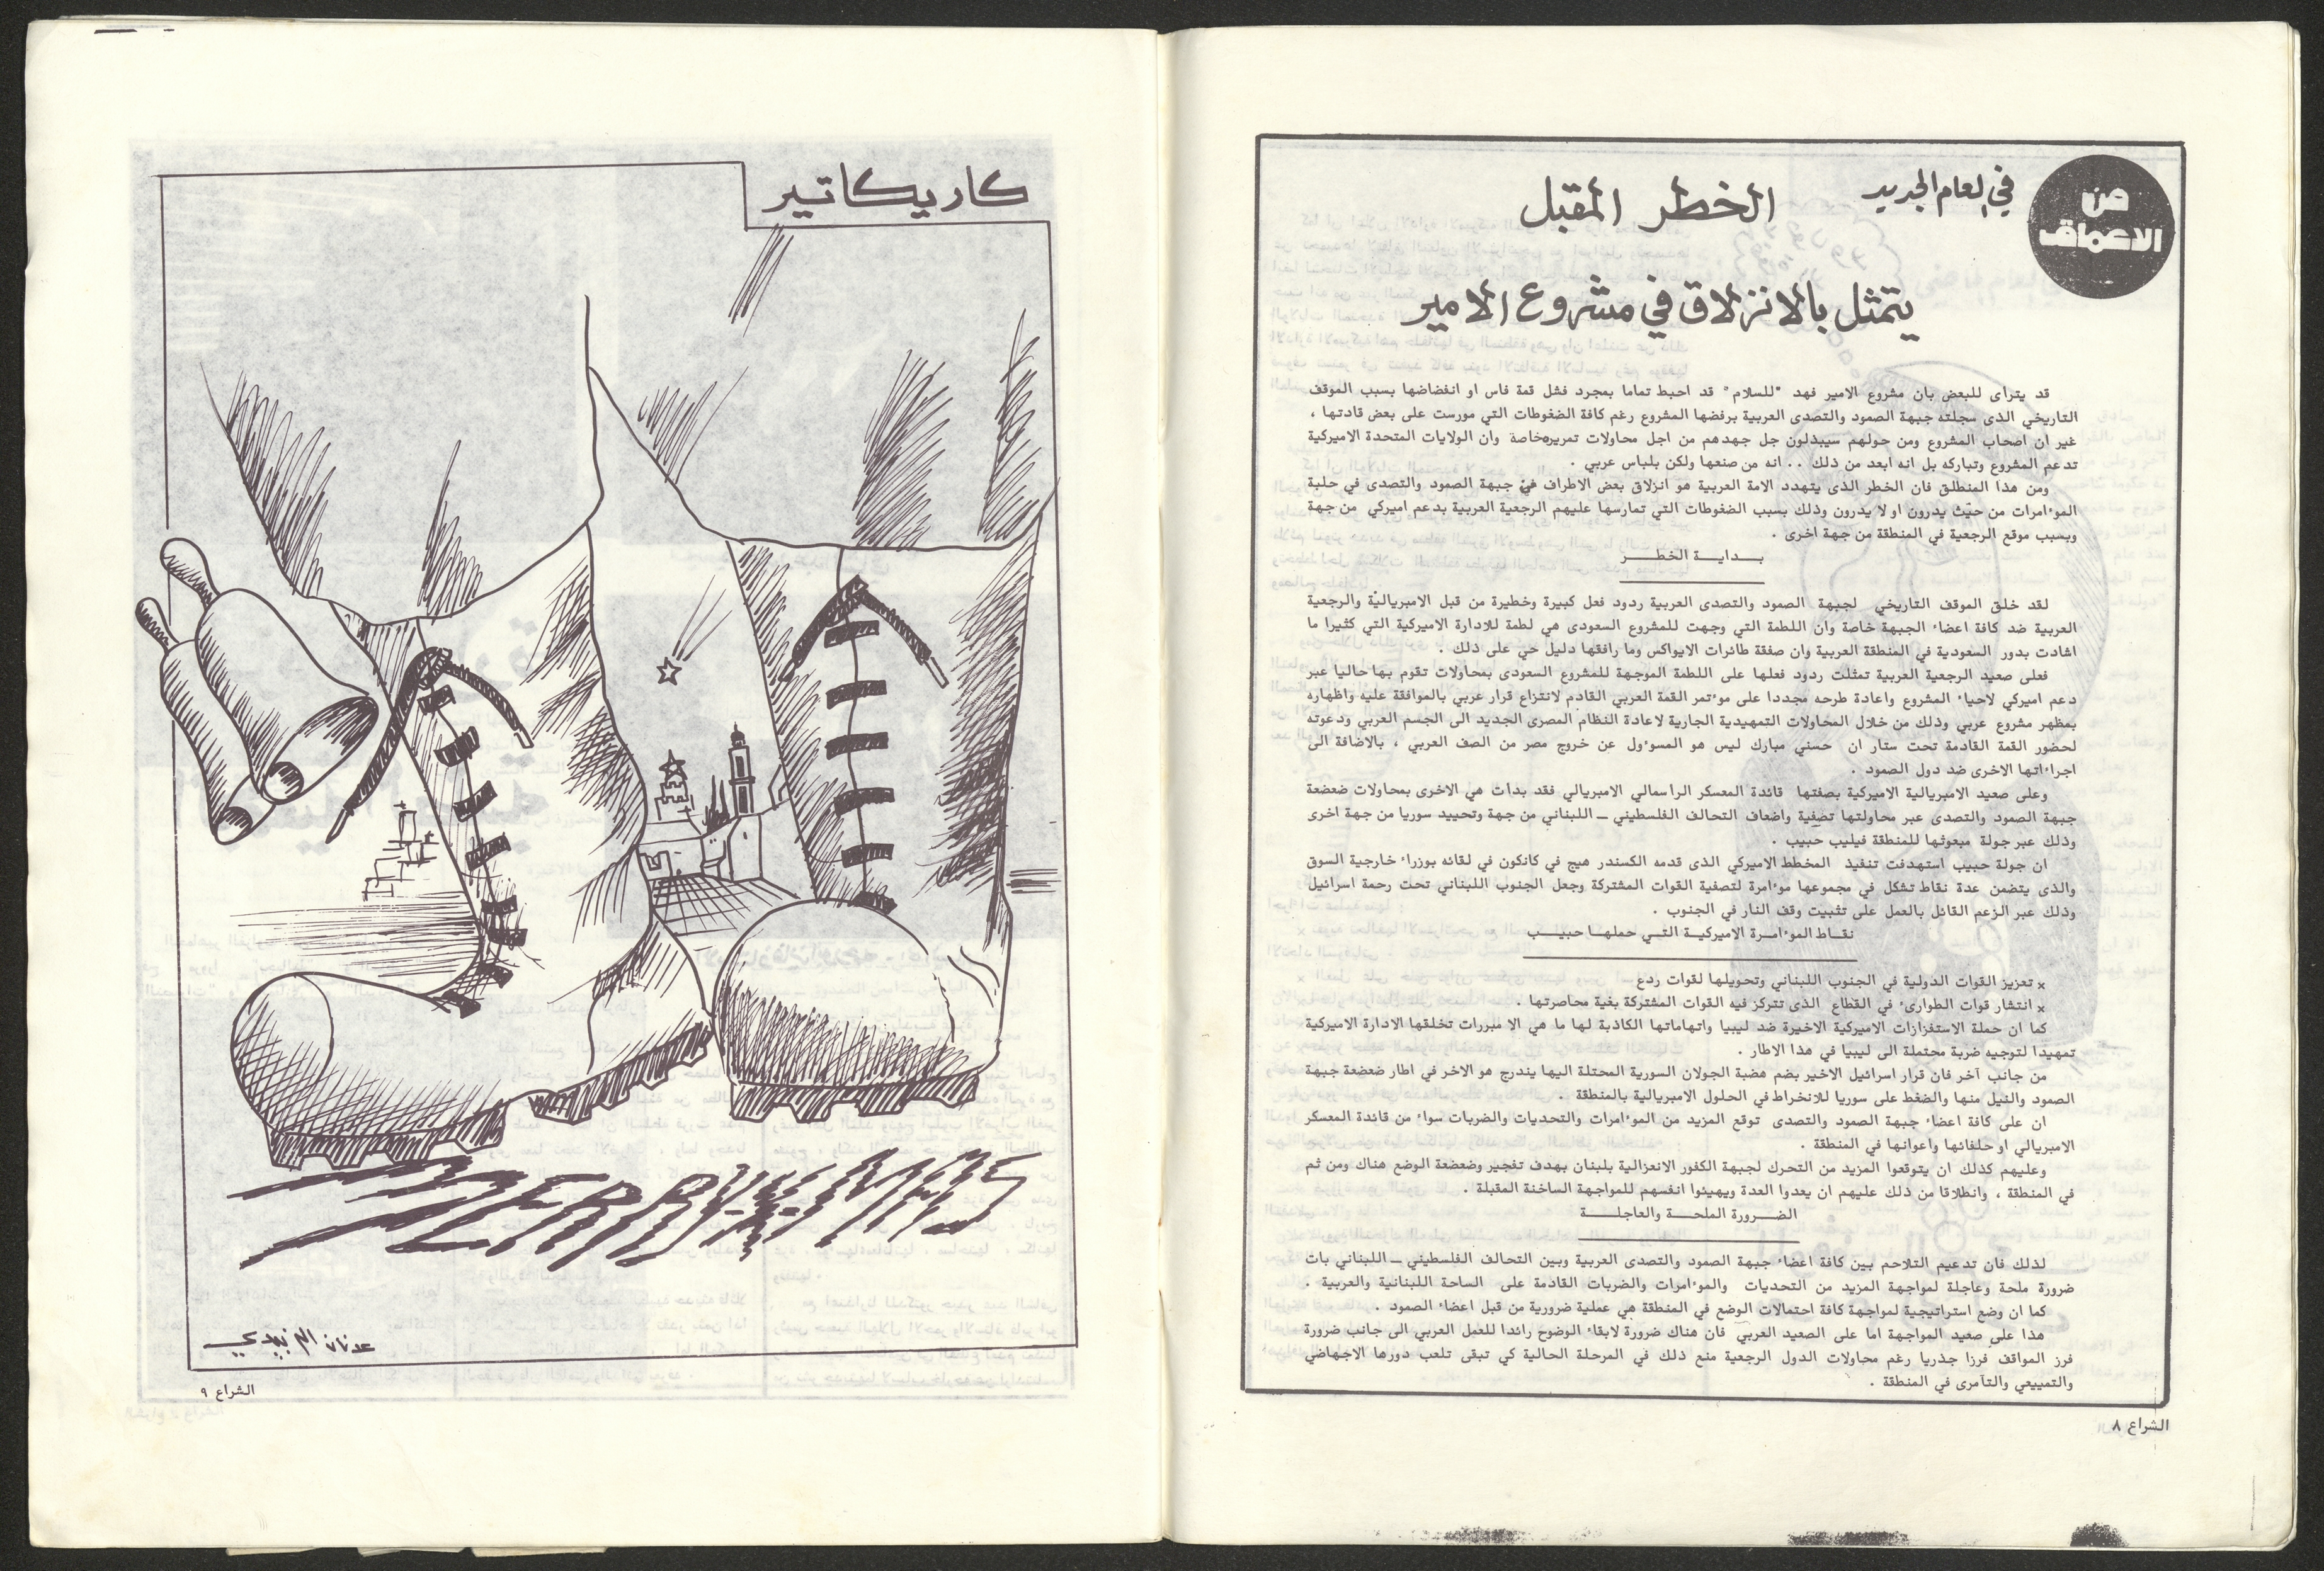 من
الاعماق
في العام الجديد
الخطر المقبل
يتمثل بالانزلاق في مشروع الامير
قد يتراى للبعض بان مشروع الامير فهد "للسلام" قد احبط تماما بمجرد فشل قمة فاس او انفضاضها بسبب الموقف
التاريخي الذى سجلته جبهة الصمود والتصدى العربية برفضها المشروع رغم كافة الضغوطات التي مورست على بعض قادتها ،
غير ان اصحاب المشروع ومن حولهم سيبذلون جل جهدهم من اجل محاولات تمريره خاصة وان الولايات المتحدة الاميركية
تدعم المشروع وتباركه بل انه ابعد من ذلك .. انه من صنعها ولكن بلباس عربي .
ومن هذا المنطلق فان الخطر الذى يتهدد الامة العربية هو انزلاق بعض الاطراف في جبهة الصمود والتصدى في حلبة
المو٬امرات من حيث يدرون او لا يدرون وذلك بسبب الضغوطات التي تمارسها عليهم الرجعية العربية بدعم اميركي من جهة
وبسبب موقع الرجعية في المنطقة من جهة اخرى .
بـــدايـــة الخطـــر
لقد خلق الموقف التاريخي لجبهة الصمود والتصدى العربية ردود فعل كبيرة وخطيرة من قبل الامبريالية والرجعية
العربية ضد كافة اعضاء الجبهة خاصة وان اللطمة التي وجهت للمشروع السعودى هي لطمة للادارة الاميركية التي كثيرا ما
اشادت بدور السعودية في المنطقة العربية وان صفقة طائرات الايواكس وما رافقها دليل حي على ذلك .
فعلى صعيد الرجعية العربية تمثلت ردود فعلها على اللطمة الموجهة للمشروع السعودى بمحاولات تقوم بها حاليا عبر
دعم اميركي لاحياء المشروع واعادة طرحه مجددا على موءتمر القمة العربي القادم لانتزاع قرار عربي بالموافقة عليه واظهاره
بمظهر مشروع عربي وذلك من خلال المحاولات التمهيدية الجارية لاعادة النظام المصرى الجديد الى الجسم العربي ودعوته
لحضور القمة القادمة تحت ستار ان حسني مبارك ليس هو المسوءول عن خروج مصر من الصف العربي ، بالاضافة الى
اجراءاتها الاخرى ضد دول الصمود .
وعلى صعيد الامبريالية الاميركية بصفتها قائدة المعسكر الراسمالي الامبريالي فقد بدات هي الاخرى بمحاولات ضعضعة
جبهة الصمود والتصدى عبر محاولتها تصفية واضعاف التحالف الفلسطيني ـ اللبناني من جهة وتحييد سوريا من جهة اخرى
وذلك عبر جولة مبعوثها للمنطقة فيليب حبيب .
ان جولة حبيب استهدفت تنفيذ المخطط الاميركي الذى قدمه الكسندر هيج في كانكون في لقائه بوزراء خارجية السوق
والذى يتضمن عدة نقاط تشكل في مجموعها موءامرة لتصفية القوات المشتركة وجعل الجنوب اللبناني تحت رحمة اسرائيل
وذلك عبر الزعم القائل بالعمل على تثبيت وقف النار في الجنوب .
نقـاط الموءامـرة الاميركيـة التـي حملهـا حبيـب
× تعزيز القوات الدولية في الجنوب اللبناني وتحويلها لقوات ردع
× انتشار قوات الطوارىء في القطاع الذى تتركز فيه القوات المشتركة بغية محاصرتها .
كما ان حملة الاستفزازات الاميركية الاخيرة ضد ليبيا واتهاماتها الكاذبة لها ما هي الا مبررات تخلقها الادارة الاميركية
تمهيدا لتوجيه ضربة محتملة الى ليبيا في هذا الاطار .
من جانب آخر فان قرار اسرائيل الاخير بضم هضبة الجولان السورية المحتلة اليها يندرج هو الاخر في اطار ضعضعة جبهة
الصمود والنيل منها والضغط على سوريا للانخراط في الحلول الامبريالية بالمنطقة .
ان على كافة اعضاء جبهة الصمود والتصدى توقع المزيد من الموءامرات والتحديات والضربات سواء من قائدة المعسكر
الامبريالي او حلفائها واعوانها في المنطقة .
وعليهم كذلك ان يتوقعوا المزيد من التحرك لجبهة الكفور الانعزالية بلبنان بهدف تفجير وضعضعة الوضع هناك ومن ثم
في المنطقة ، وانطلاقا من ذلك عليهم ان يعدوا العدة ويهيئوا انفسهم للمواجهة الساخنة المقبلة .
الضـرورة الملحـة والعاجلـة
لذلك فان تدعيم التلاحم بين كافة اعضاء جبهة الصمود والتصدى العربية وبين التحالف الفلسطيني ـ اللبناني بات
ضرورة ملحة وعاجلة لمواجهة المزيد من التحديات والموءامرات والضربات القادمة على الساحة اللبنانية والعربية .
كما ان وضع استراتيجية لمواجهة كافة احتمالات الوضع في المنطقة هي عملية ضرورية من قبل اعضاء الصمود .
هذا على صعيد المواجهة اما على الصعيد العربي فان هناك ضرورة لابقاء الوضوح رائدا للعمل العربي الى جانب ضرورة
فرز المواقف فرزا جذريا رغم محاولات الدول الرجعية منع ذلك في المرحلة الحالية كي تبقى تلعب دورها الاجهاضي
والتمييعي والتآمرى في المنطقة .
الشراع ٨
كاريكاتير
عدنان الزبيدي
الشراع ٩